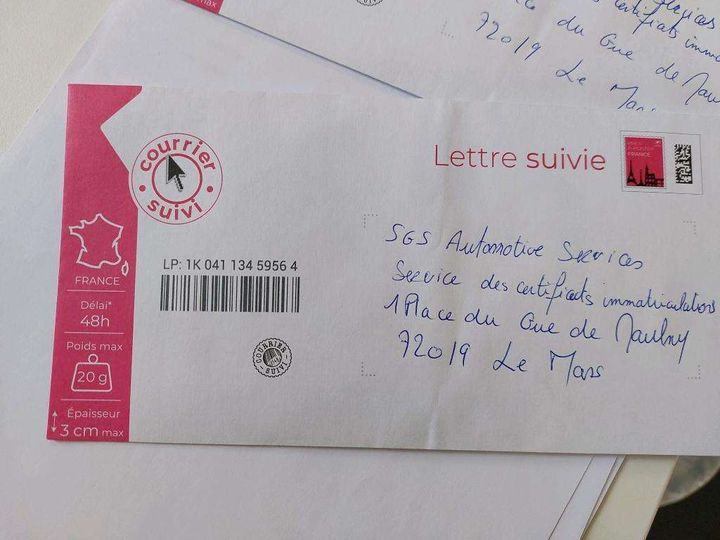 max
certificats imm
du Gue de Mauln
72019 Le Mans
courrier
suivi
Lettre suivie
FRANCE
LP: 1K 041 134 5956 4
COURRIER
SUIVI
FRANCE
Délai*
48h
Poids max
20 g
Épaisseur
3 cm max
SGS Automotive Services
Service des certificats immatriculations
1 Place du Gue de Maulny
72019 Le Mans